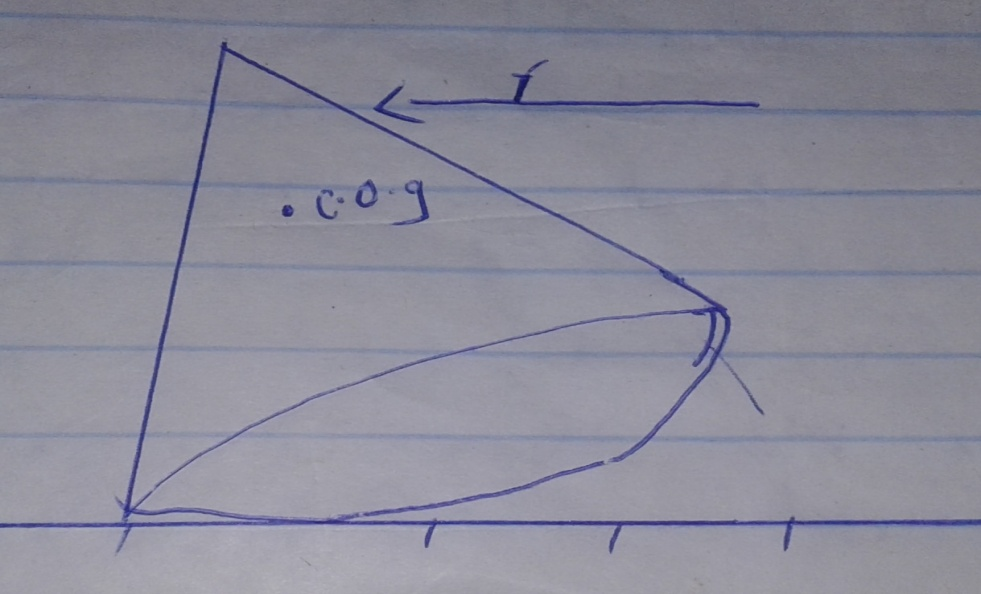 F
c.o.g